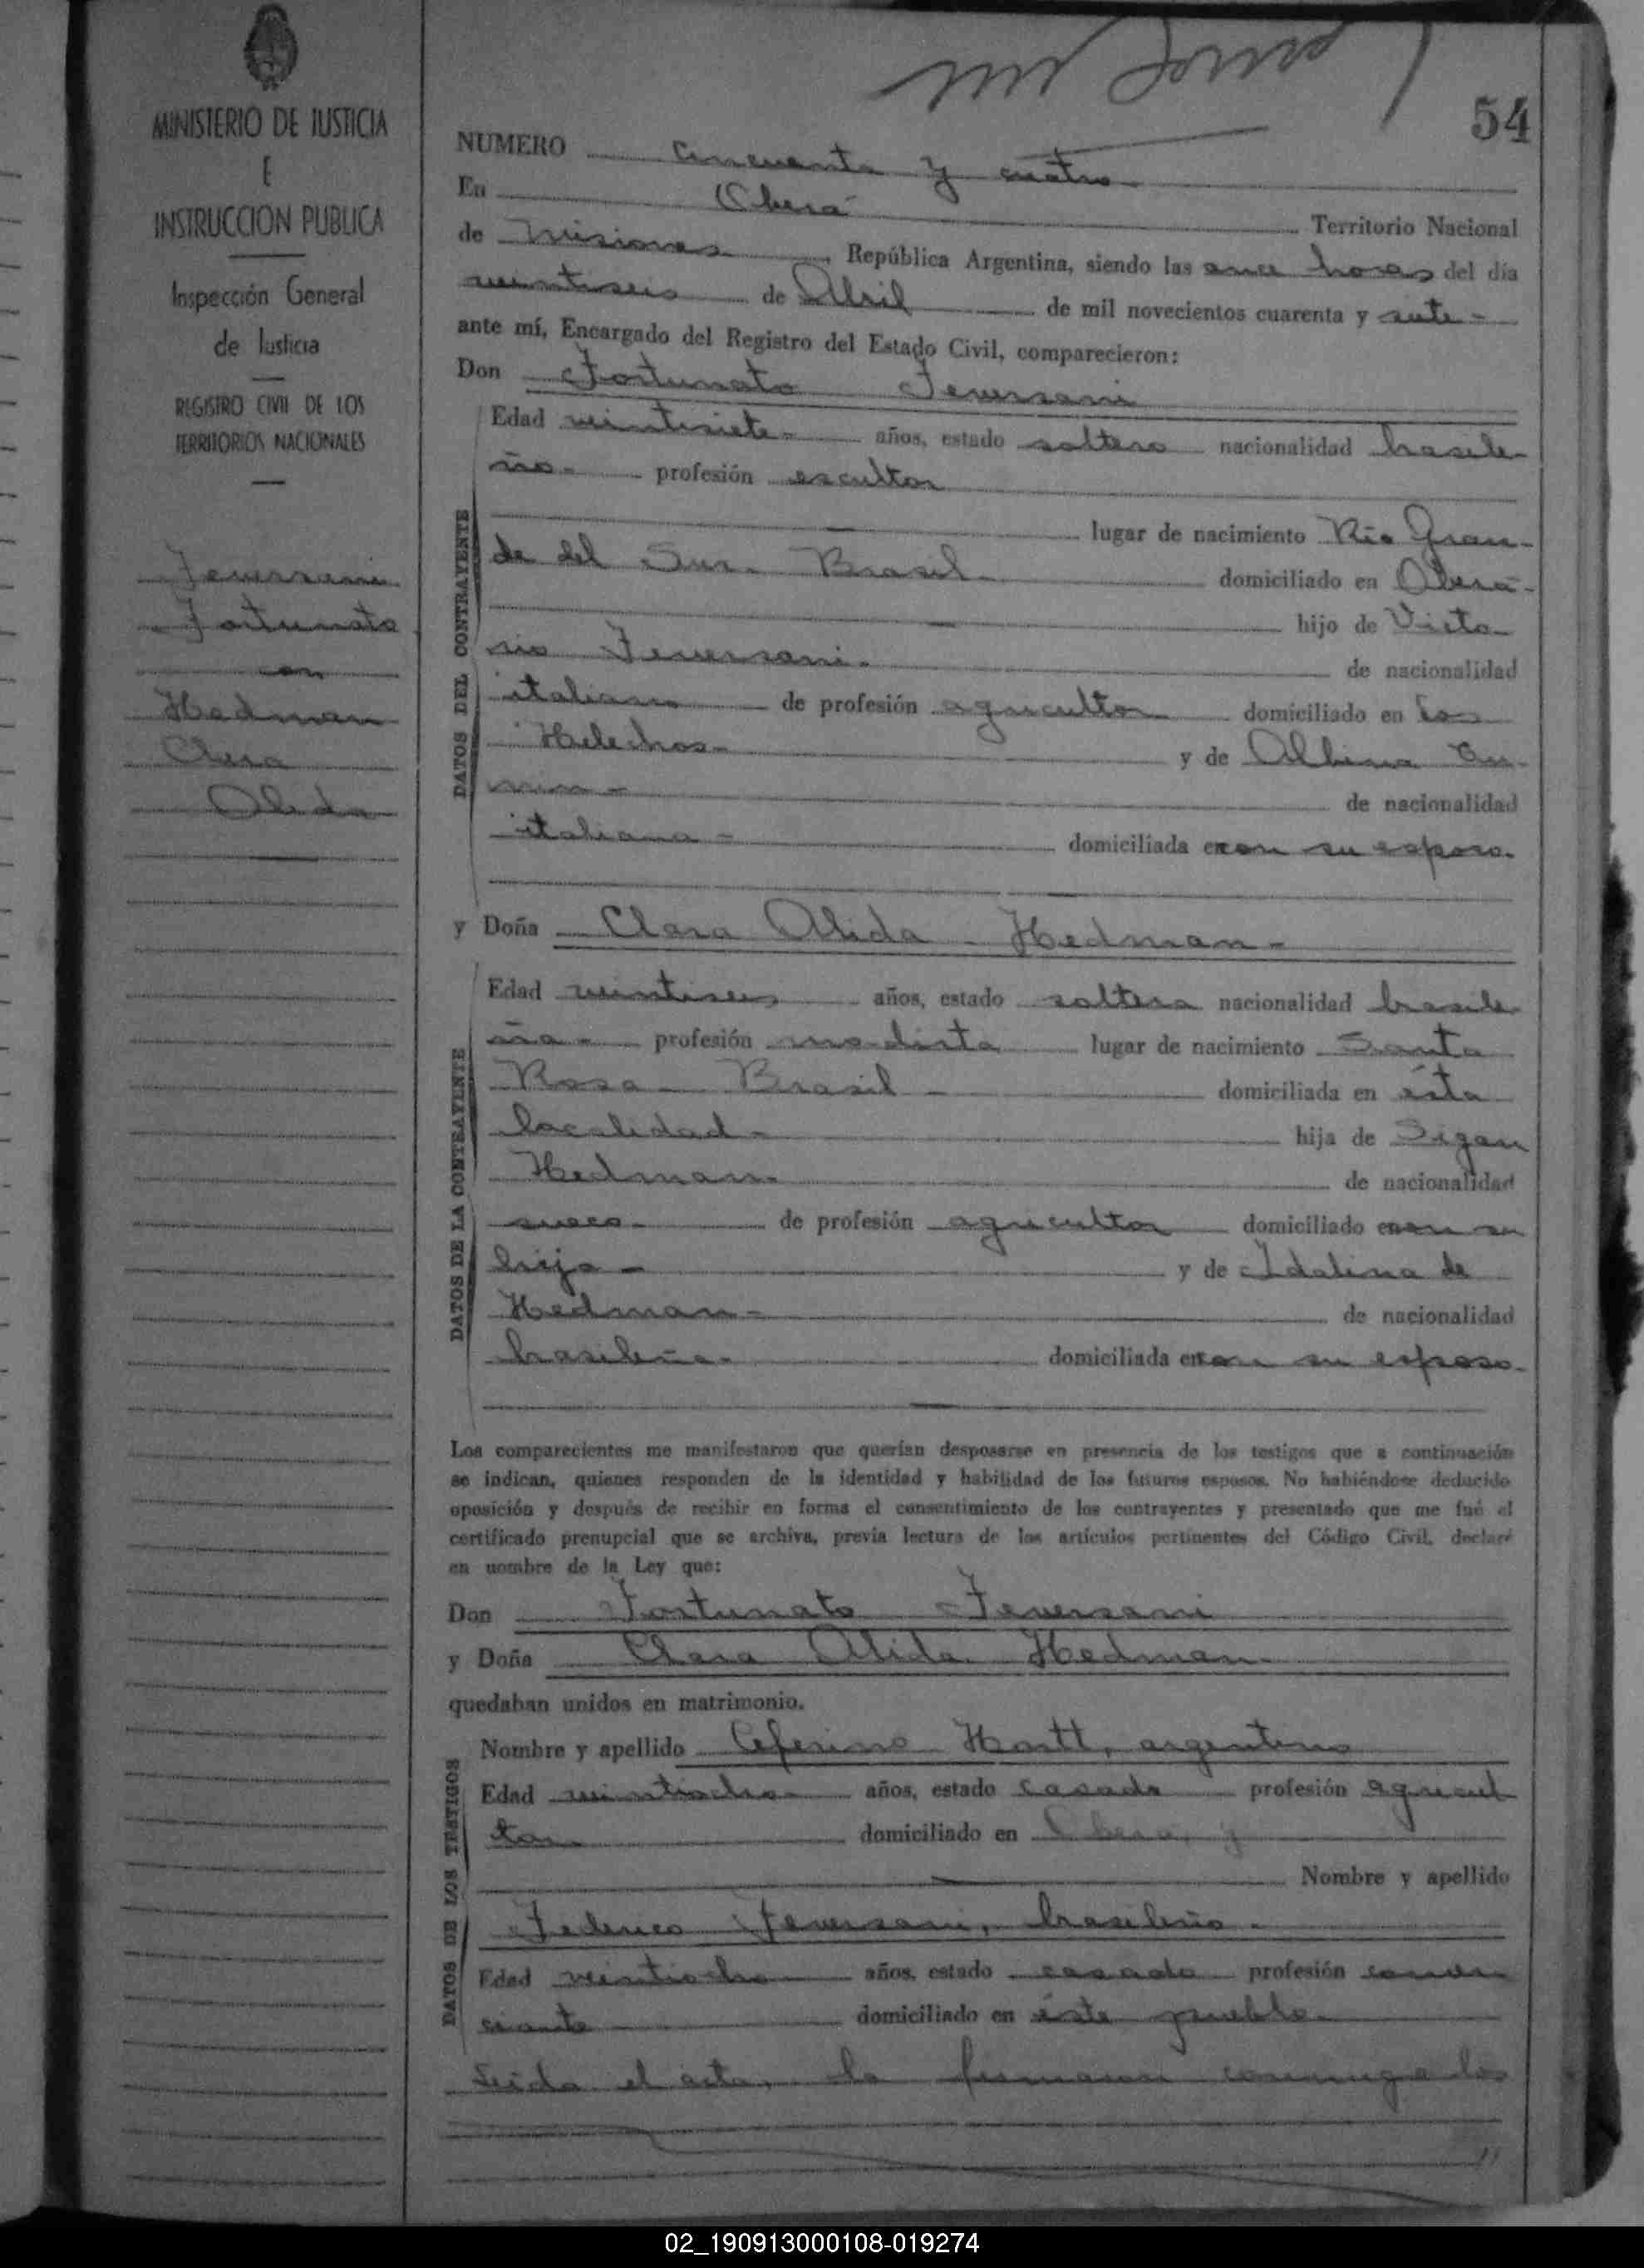 54
MINISTERIO DE JUSTICIA
E
INSTRUCCION PUBLICA
Inspección General
de Justicia
REGISTRO CIVIL DE LOS
TERRITORIOS NACIONALES
Feversani
Fortunato
con
Hedman
Clara
Alida
NUMERO cincuenta y cuatro
En Oberá Territorio Nacional
de Misiones, República Argentina, siendo las once horas del día
veintiseis de Abril de mil novecientos cuarenta y siete
ante mí, Encargado del Registro del Estado Civil, comparecieron:
Don Fortunato Feversani
DATOS DEL CONTRAYENTE
Edad veintisiete años, estado soltero nacionalidad brasile-
ño profesión escultor
lugar de nacimiento Río Gran-
de del Sur Brasil domiciliado en Oberá
hijo de Victo-
rio Feversani de nacionalidad
italiano de profesión agricultor domiciliado en Los
Helechos y de Albina
de nacionalidad
italiana domiciliada en con su esposo.
y Doña Clara Alida Hedman
DATOS DE LA CONTRAYENTE
Edad veintiseis años, estado soltera nacionalidad brasile-
ña profesión modista lugar de nacimiento Santa
Rosa Brasil domiciliada en ésta
localidad hija de
Hedman de nacionalidad
sueco de profesión agricultor domiciliado en con su
hija y de Idalina de
Hedman de nacionalidad
brasileña domiciliada en con su esposo.
Los comparecientes me manifestaron que querían desposarse en presencia de los testigos que a continuación
se indican, quienes responden de la identidad y habilidad de los futuros esposos. No habiéndose deducido
oposición y después de recibir en forma el consentimiento de los contrayentes y presentado que me fué el
certificado prenupcial que se archiva, previa lectura de los artículos pertinentes del Código Civil, declaré
en nombre de la Ley que:
Don Fortunato Feversani
y Doña Clara Alida Hedman
quedaban unidos en matrimonio.
DATOS DE LOS TESTIGOS
Nombre y apellido Ceferino Hartt, argentino
Edad veintiocho años, estado casado profesión agricul
tor domiciliado en Oberá, y
Nombre y apellido
Federico Feversani, brasileño
Edad veintiocho años, estado casado profesión comer-
ciante domiciliado en éste pueblo
Leída el acta, la firmaron conmigo los
02_190913000108-019274